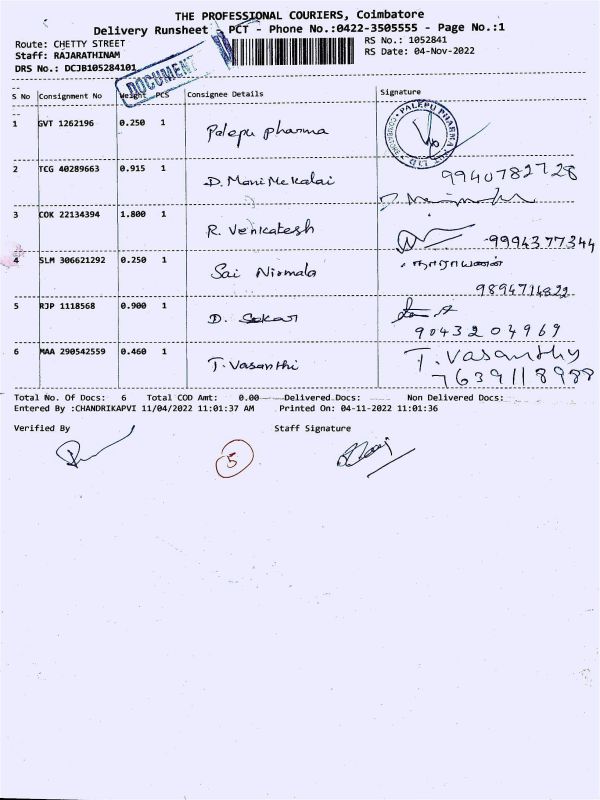 THE PROFESSIONAL COURIERS, Coimbatore
Delivery Runsheet PCT - Phone No.:0422-3505555 - Page No.:1
Route: CHETTY STREET
RS No.: 1052841
Staff: RAJARATHINAM
RS Date: 04-Nov-2022
DRS No.: DCJB105284101
DOCUMENT
S No Consignment No Weight PCS Consignee Details Signature
1 GVT 1262196 0.250 1 Palepu pharma
PALEPU PHARMA
2 TCG 40289663 0.915 1 D. Manimekalai 9940782728
3 COK 22134394 1.800 1 R. Venkatesh 9994377344
4 SLM 306621292 0.250 1 Sai Nirmala நாராயணன்
9894714822
5 RJP 1118568 0.900 1 D. Sekar
9043204969
6 MAA 290542559 0.460 1 T. Vasanthi T. Vasanthy
7639118988
Total No. Of Docs: 6 Total COD Amt: 0.00 Delivered Docs: Non Delivered Docs:
Entered By :CHANDRIKAPVI 11/04/2022 11:01:37 AM Printed On: 04-11-2022 11:01:36
Verified By Staff Signature
5